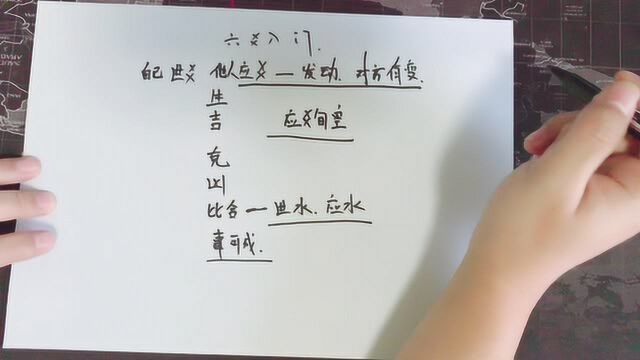 六爻入门.
自己世爻 他人应爻一发动.对方有变.
生
吉 应爻旬空
克
凶
比合一世水.应水
事可成.